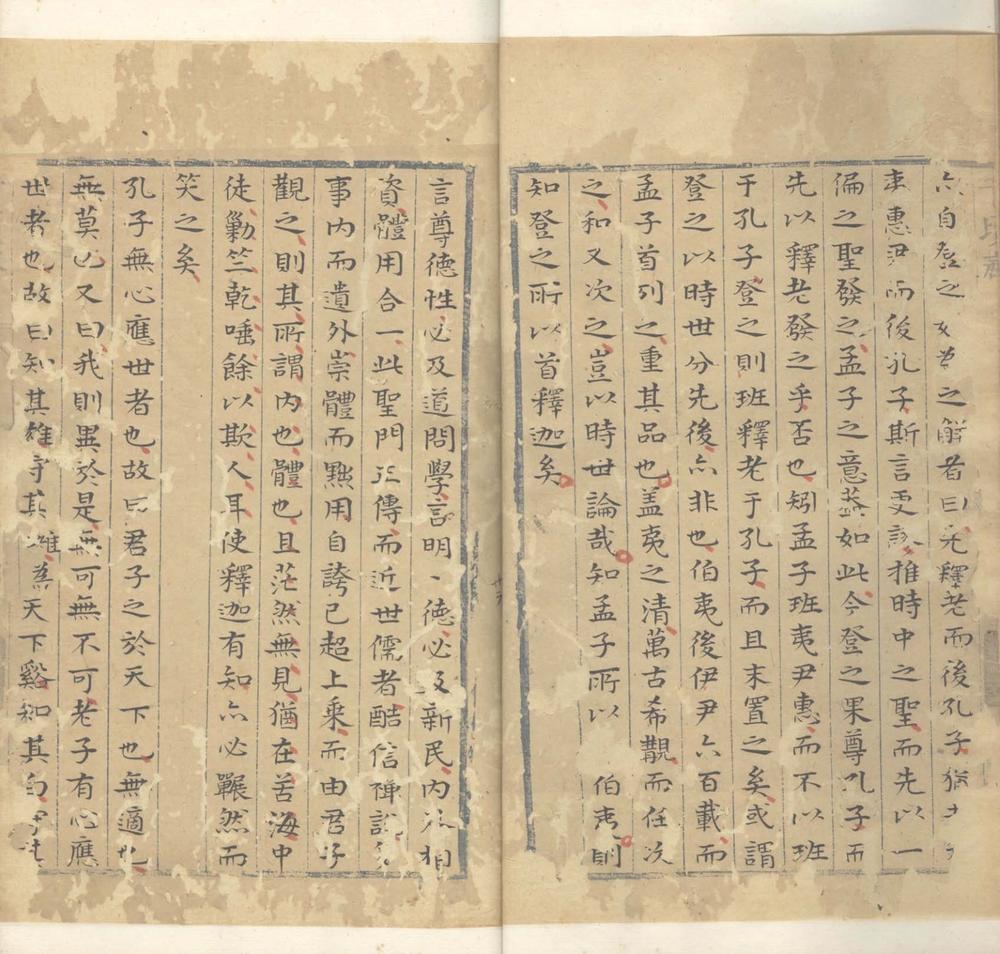 亦自登之之解者曰先釋老而後孔子猶
夷惠尹而後孔子斯言更誤推時中之聖而先以一
偏之聖發之孟子之意葢如此今登之果尊孔子而
先以釋老發之乎否也矧孟子班夷尹惠而不以班
于孔子登之則班釋老于孔子而且末置之矣或謂
登之以時世分先後亦非也伯夷後伊尹六百載而
孟子首列之重其品也葢夷之清萬古希覯而任次
之和又次之豈以時世論哉知孟子所以 伯夷則
知登之所以首釋迦矣
言尊德性必及道問學言明、德必及新民內外相
資體用合一此聖門正傳而近世儒者酷信禪說
事內而遺外崇體而黜用自誇已超上乘而由君子
觀之則其所謂內也體也且茫然無見猶在苦海中
徒勦竺乾唾餘以欺人耳使釋迦有知亦必囅然而
笑之矣
孔子無心應世者也故曰君子之於天下也無適也
無莫也又曰我則異於是無可無不可老子有心應
世者也故曰知其雄守其雌為天下谿知其白守其